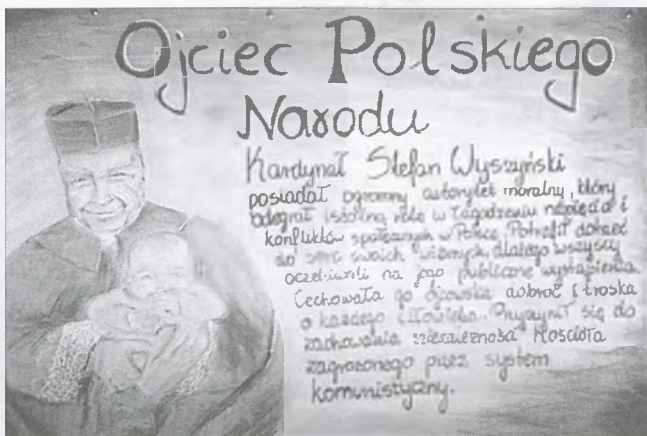 Ojciec Polskiego
Narodu
Kardynał Stefan Wyszyński
posiadał ogromny autorytet moralny, który
odegrał istotną rolę w łagodzeniu napięcia i
konfliktów społecznych w Polsce. Potrafił dotrzeć
do serc swoich wiernych, dlatego wszyscy
oczekiwali na jego publiczne wystąpienia.
Cechowała go ojcowska dobroć i troska
o każdego człowieka. Przyczynił się do
zachowania niezależności Kościoła
zagrożonego przez system
komunistyczny.